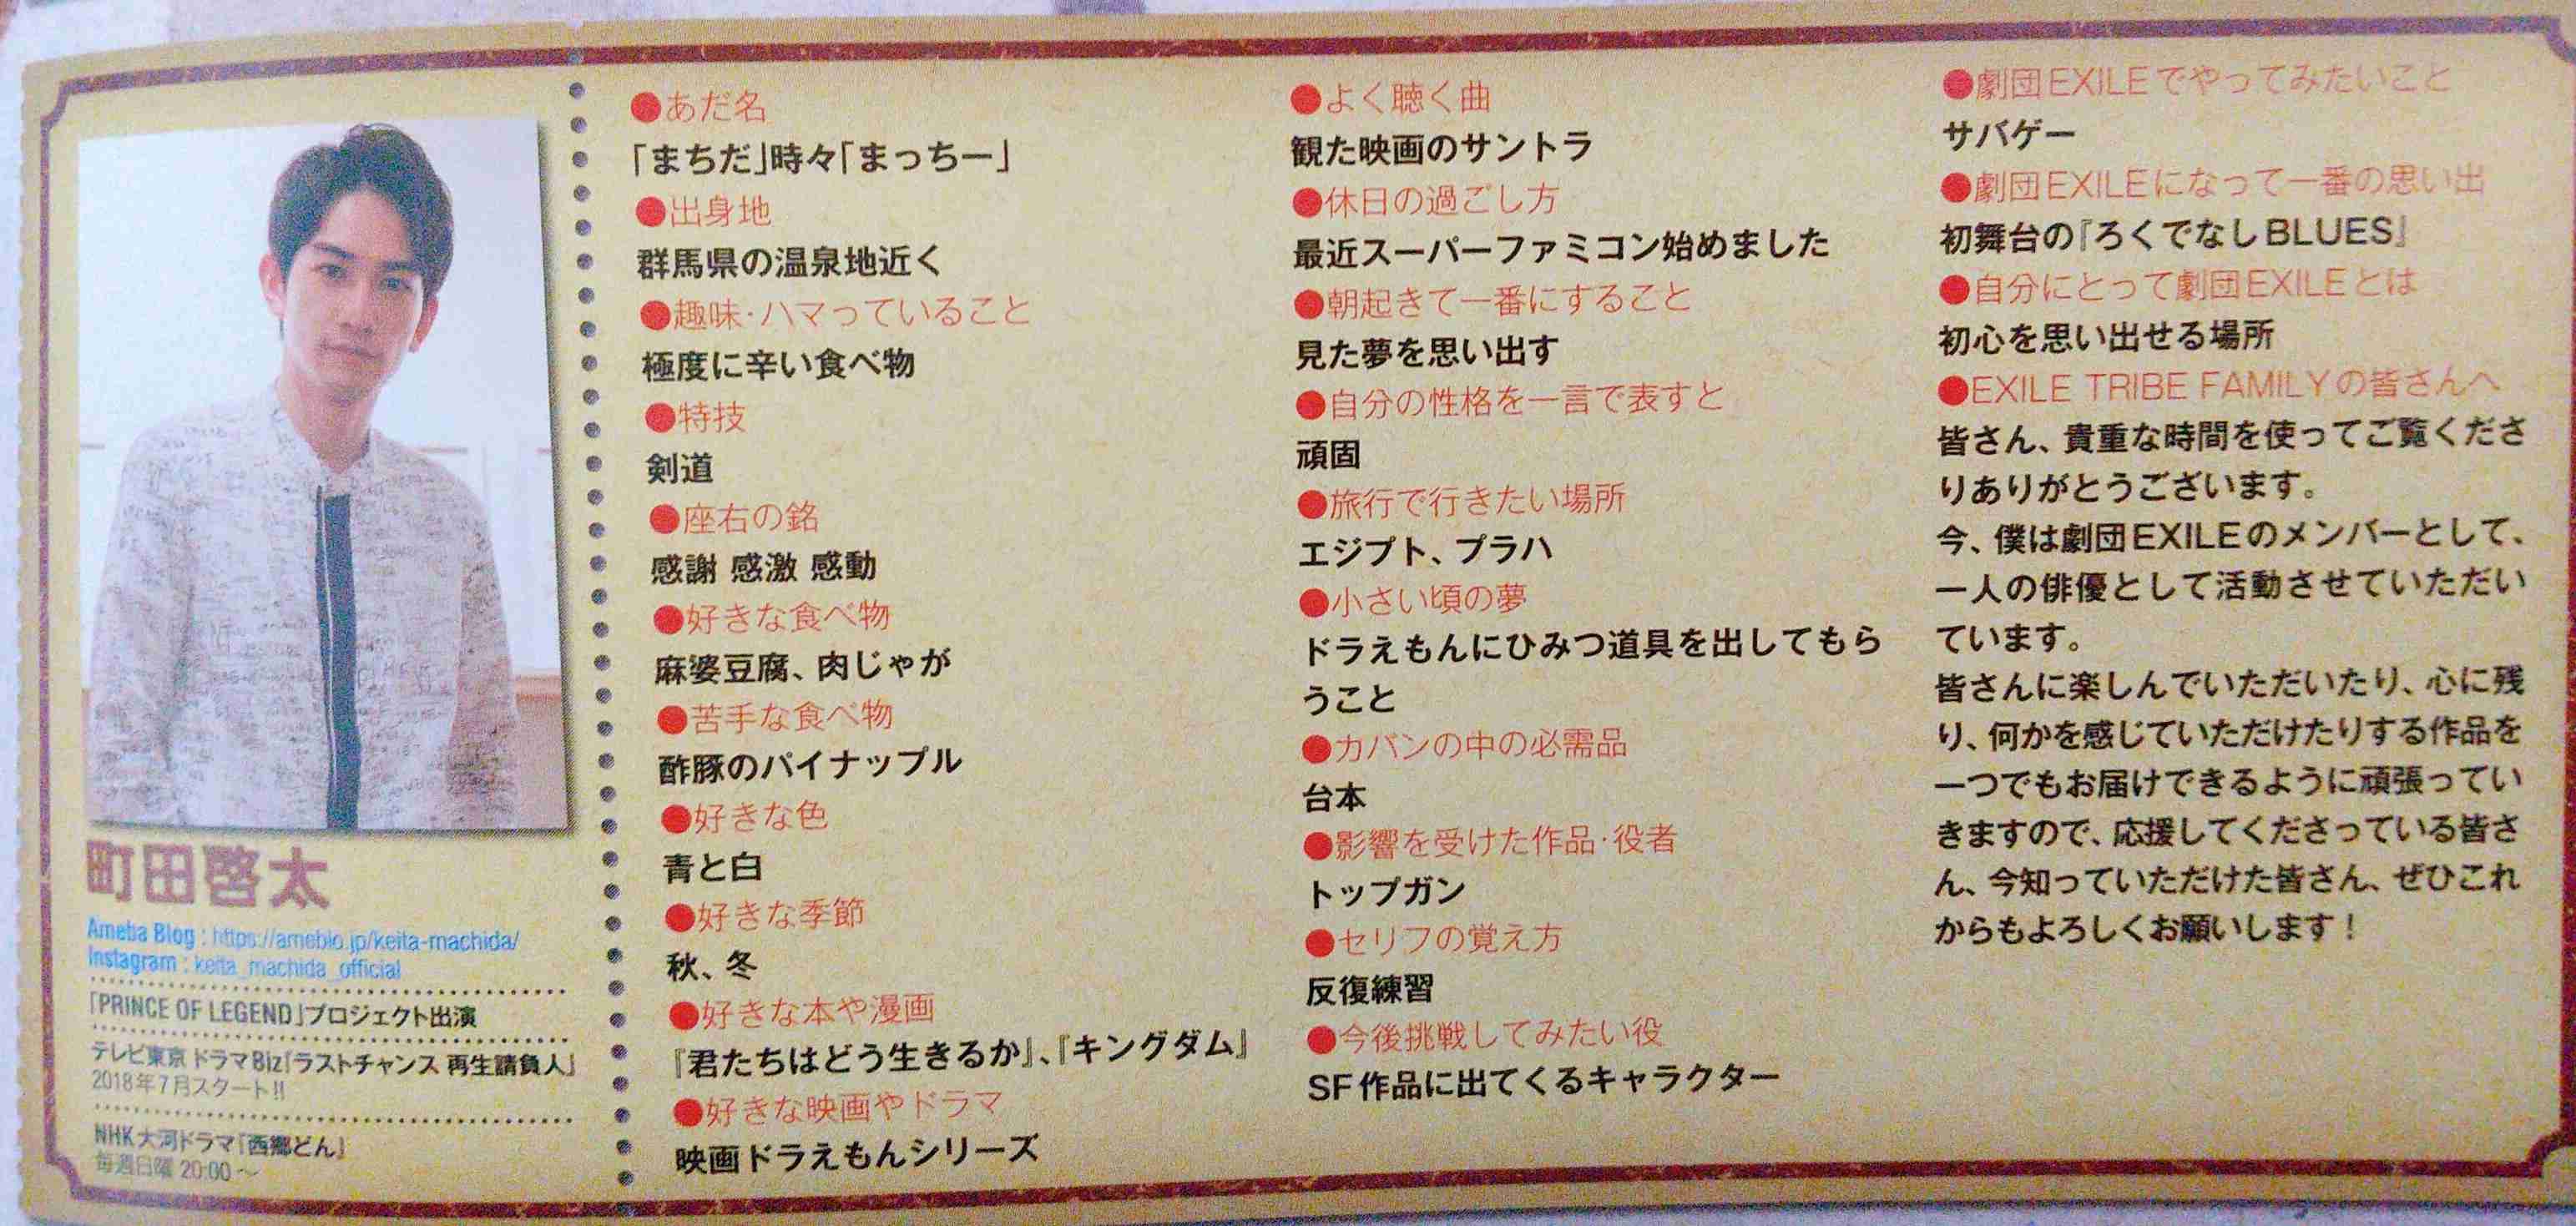 町田啓太
Ameba Blog : https://ameblo.jp/keita-machida/
Instagram : keita_machida_official
「PRINCE OF LEGEND」プロジェクト出演
テレビ東京 ドラマBiz「ラストチャンス 再生請負人」
2018年7月スタート!!
NHK大河ドラマ「西郷どん」
毎週日曜 20:00〜
●あだ名
「まちだ」時々「まっちー」
●出身地
群馬県の温泉地近く
●趣味・ハマっていること
極度に辛い食べ物
●特技
剣道
●座右の銘
感謝 感激 感動
●好きな食べ物
麻婆豆腐、肉じゃが
●苦手な食べ物
酢豚のパイナップル
●好きな色
青と白
●好きな季節
秋、冬
●好きな本や漫画
『君たちはどう生きるか』、『キングダム』
●好きな映画やドラマ
映画ドラえもんシリーズ
●よく聴く曲
観た映画のサントラ
●休日の過ごし方
最近スーパーファミコン始めました
●朝起きて一番にすること
見た夢を思い出す
●自分の性格を一言で表すと
頑固
●旅行で行きたい場所
エジプト、プラハ
●小さい頃の夢
ドラえもんにひみつ道具を出してもら
うこと
●カバンの中の必需品
台本
●影響を受けた作品・役者
トップガン
●セリフの覚え方
反復練習
●今後挑戦してみたい役
SF作品に出てくるキャラクター
●劇団EXILEでやってみたいこと
サバゲー
●劇団EXILEになって一番の思い出
初舞台の『ろくでなしBLUES』
●自分にとって劇団EXILEとは
初心を思い出せる場所
●EXILE TRIBE FAMILYの皆さんへ
皆さん、貴重な時間を使ってご覧くださ
りありがとうございます。
今、僕は劇団EXILEのメンバーとして、
一人の俳優として活動させていただい
ています。
皆さんに楽しんでいただいたり、心に残
り、何かを感じていただけたりする作品を
一つでもお届けできるように頑張ってい
きますので、応援してくださっている皆さ
ん、今知っていただけた皆さん、ぜひこれ
からもよろしくお願いします！